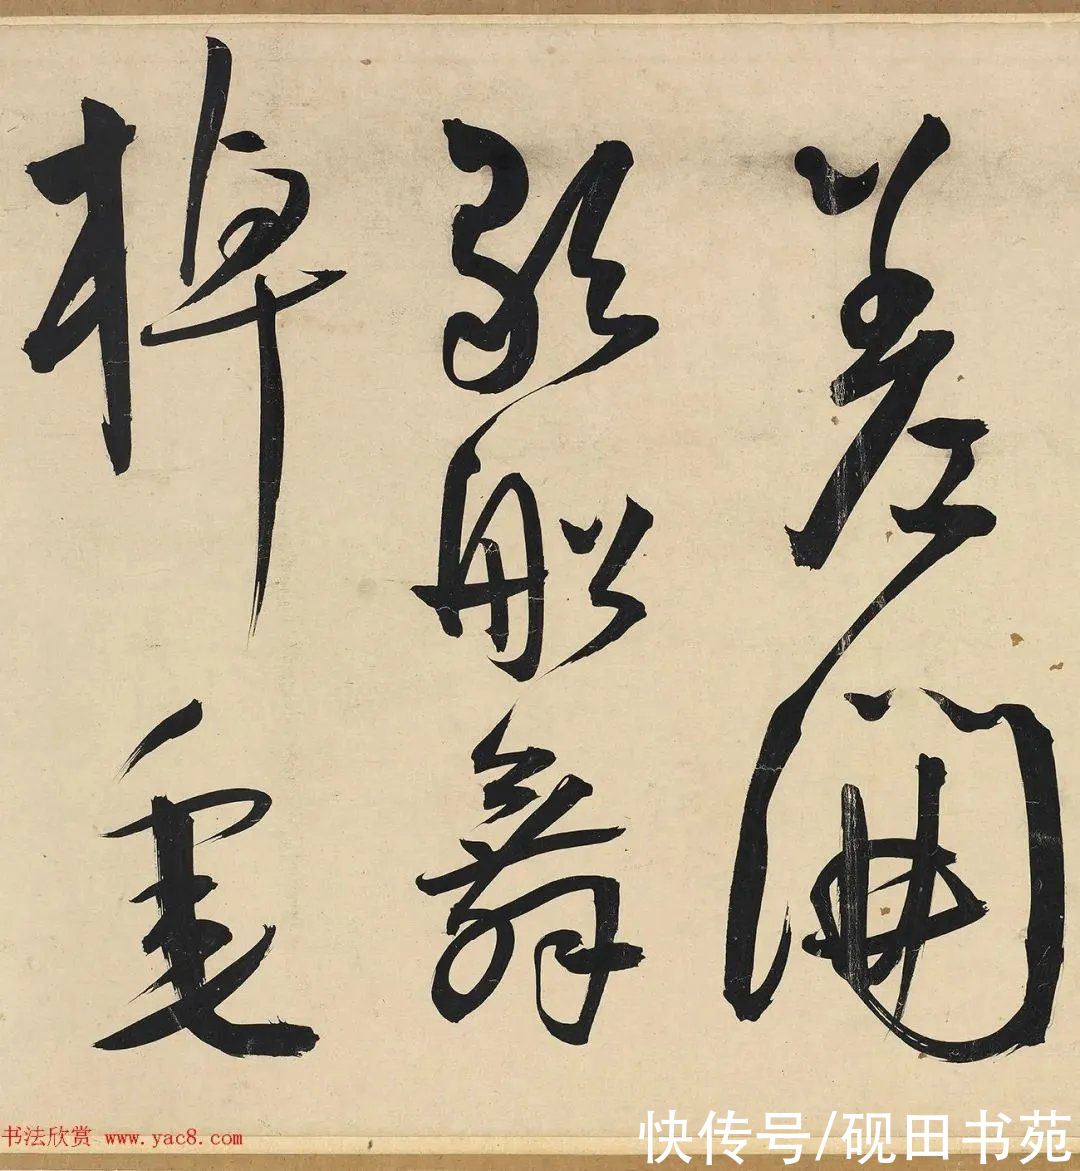 差開
歌船舞
棹重
书法欣赏 www.yac8.com
快传号/砚田书苑